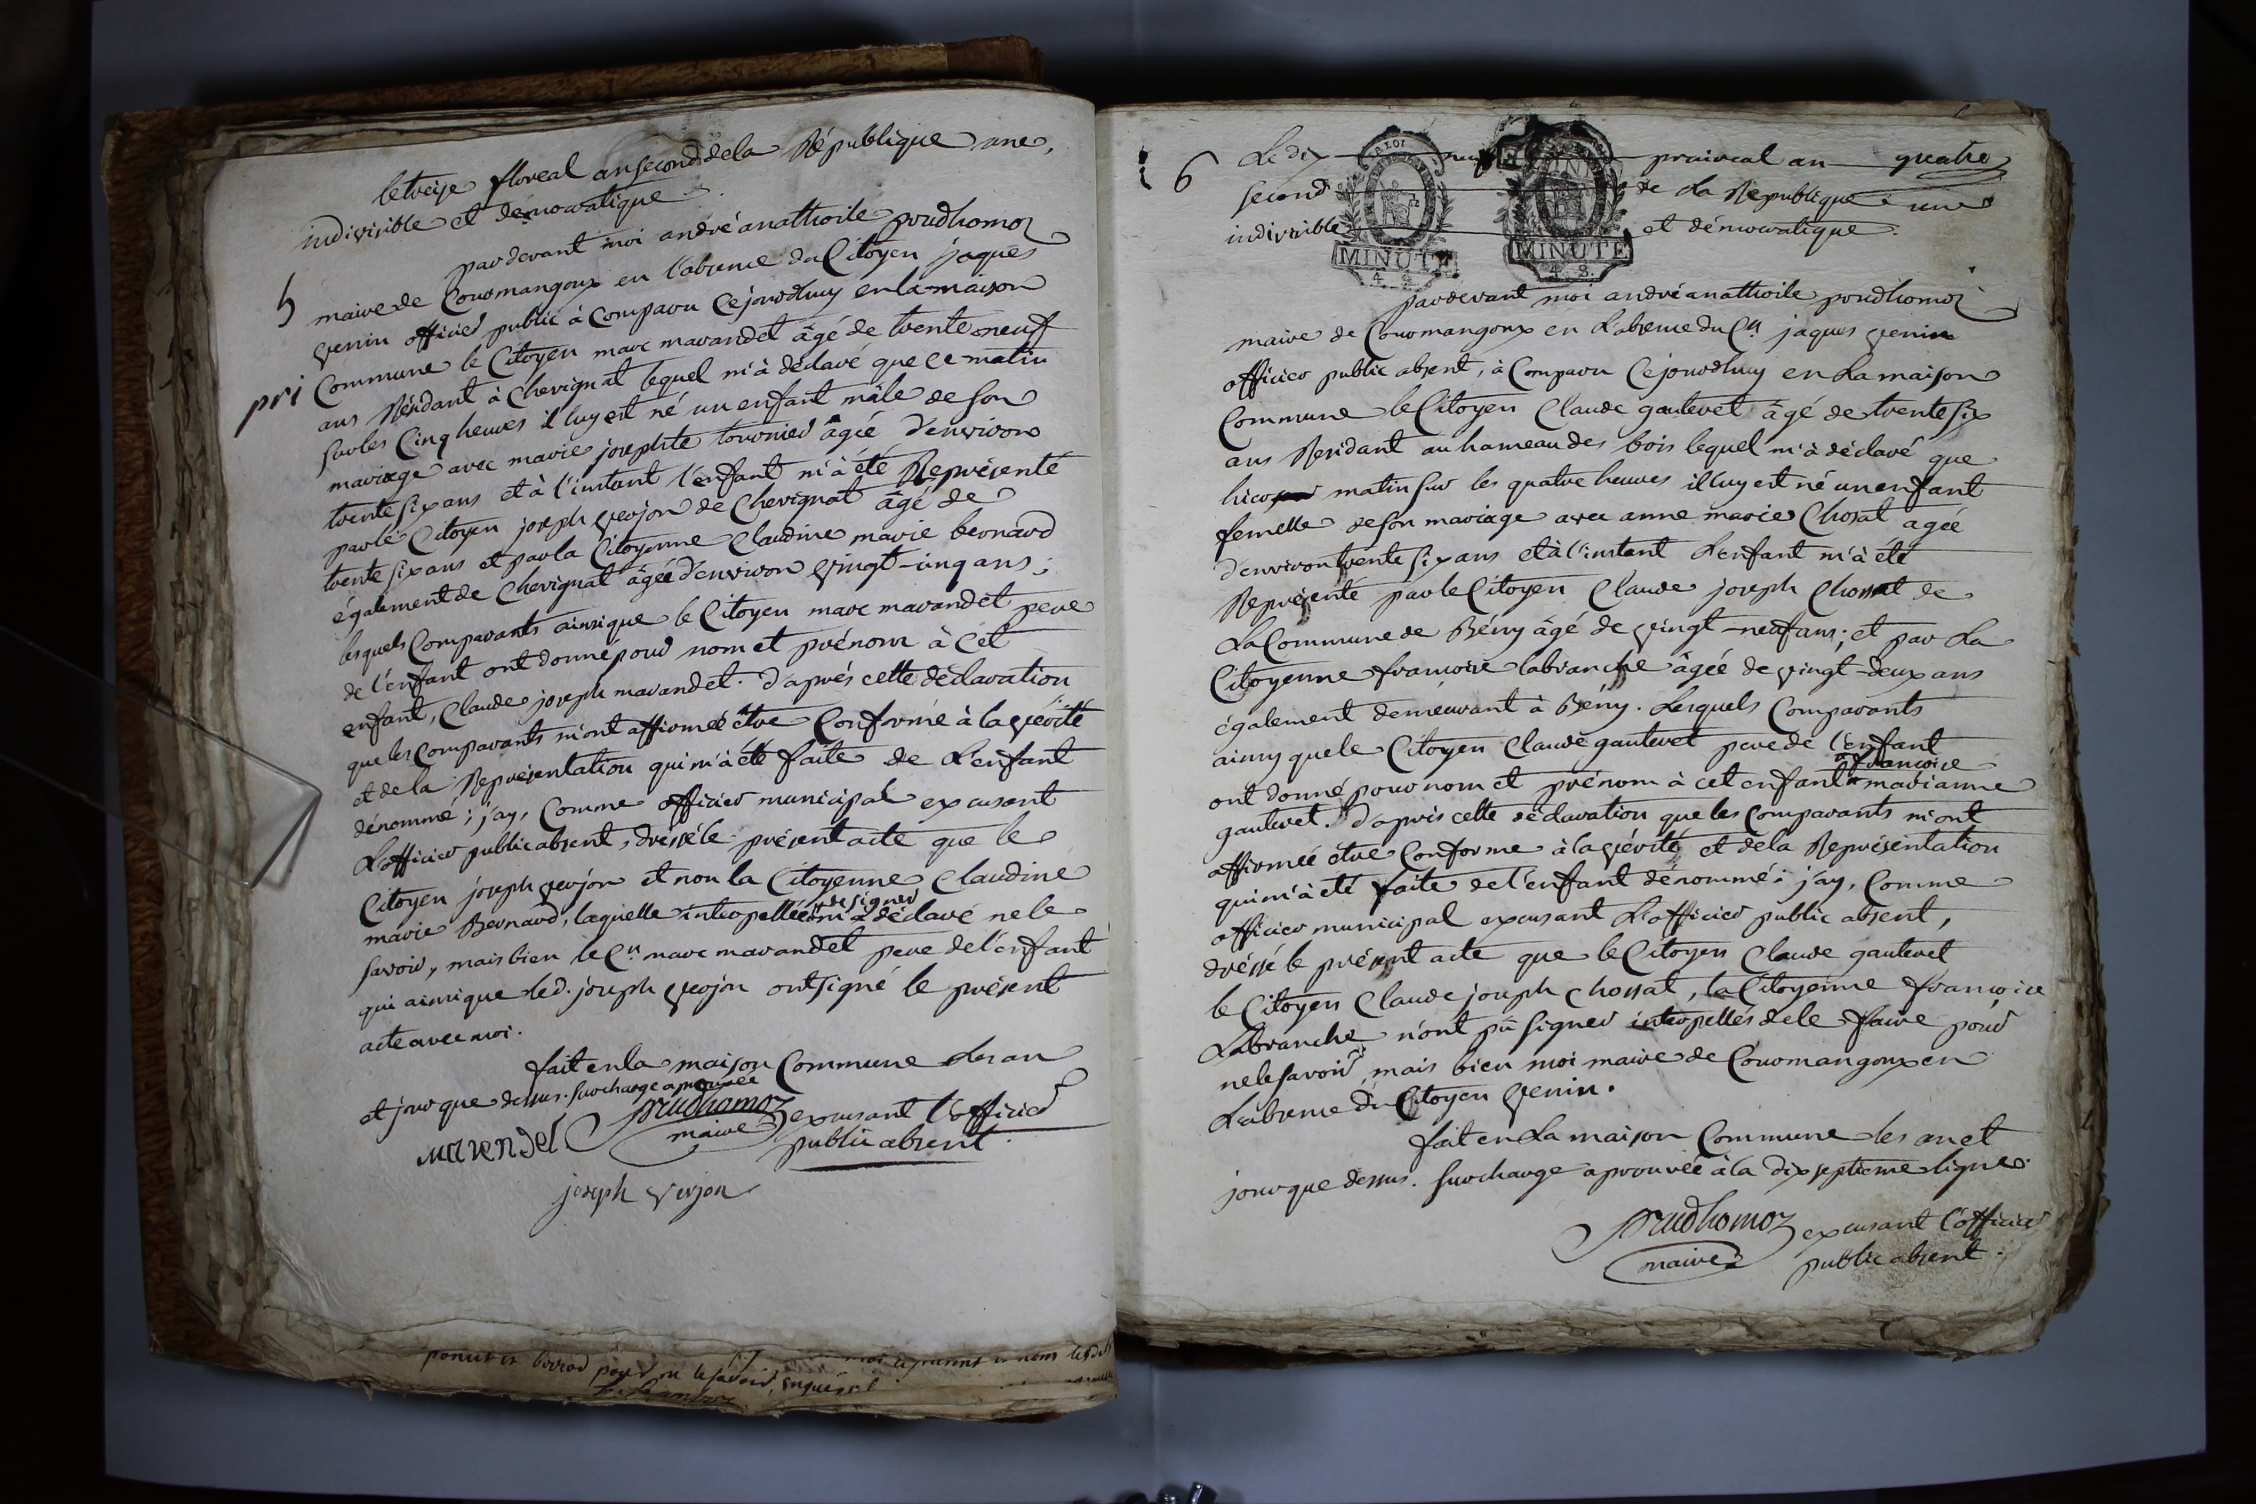 le treize floreal an second de la République une,
indivisible et démocratique.
par devant moi andré anathoile prudhomoz
5
maire de Couromangoux en l'absence du Citoyen jaques
venin officier public à comparu ce jourdhuy en la maison
Commune le Citoyen marc marandet âgé de trente neuf
pri
ans Résidant à Chevignat lequel m'à déclaré que ce matin
sur les Cinq heures il luy est né un enfant mâle de son
mariage avec marie josephte tournier âgée d'environ
trente six ans et à l'instant l'enfant m'à été Représenté
par le Citoyen joseph verjon de Chevignat âgé de
trente six ans et par la Citoyenne Claudine marie bernard
également de Chevignat âgée d'environ vingt-cinq ans ;
lesquels Comparants ainsi que le Citoyen marc marandet pere
de l'enfant ont donné pour nom et prénom à cet
enfant, Claude joseph marandet. d'après cette déclaration
que les comparants m'ont affirmée être Conforme à la vérité
et de la Représentation qui m'à été faite de L'enfant
dénommé ; j'ay, Comme officier municipal excusant
L'officier public absent, dréssé le présent acte que le
Citoyen joseph verjon et non la Citoyenne Claudine
marie Bernard, laquelle interpellée de signer m'à déclaré ne le
savoir, mais bien le C.n marc marandet pere de l'enfant
qui ainsi que led. joseph verjon ont signé le présent
acte avec moi.
fait en la maison Commune les an
et jour que dessus. surcharge aprouvée
marendet prudhomoz excusant l'officier
maire public absent.
joseph verjon
pour ne le savoir,
6 Le dix neuf prairéal an quatre
second de La République une
indivisible et démocratique.
MINUTE MINUTE
par devant moi andré anathoile prudhomoz
maire de Couromangoux en L'absence du C.n jaques venin
officier public absent, à Comparu Ce jourdhuy en La maison
Commune le Citoyen Claude gautevet âgé de trente six
ans Residant au hameau des bois lequel m'à déclaré que
hier matin sur les quatre heures il luy est né un enfant
femelle de son mariage avec anne marie Chosat agée
d'environ trente six ans et à l'instant L'enfant m'à été
Représenté par le Citoyen Claude joseph Chossat de
La Commune de Bény âgé de vingt-neuf ans ; et par La
Citoyenne françoise labranche âgée de vingt-deux ans
également demeurant à Bény. Lesquels Comparants
ainsy que le Citoyen Claude gautevet pere de l'enfant
ont donné pour nom et prénom à cet enfant françoise marianne
gautevet. d'après cette déclaration que les Comparants m'ont
affirmée être Conforme à la vérité et de la Représentation
qui m'à été faite de l'enfant dénommé ; j'ay, Comme
officier municipal excusant L'officier public absent,
dréssé le présent acte que le Citoyen Claude gautevet
le Citoyen Claude joseph Chossat, la Citoyenne françoise
Labranche n'ont pû signer interpellés de le faire pour
ne le savoir, mais bien moi maire de Couromangoux en
L'absence du Citoyen venin.
fait en La maison Commune les an et
jour que dessus. surcharge aprouvée à la dix septieme ligne.
prudhomoz excusant l'officier
maire public absent.